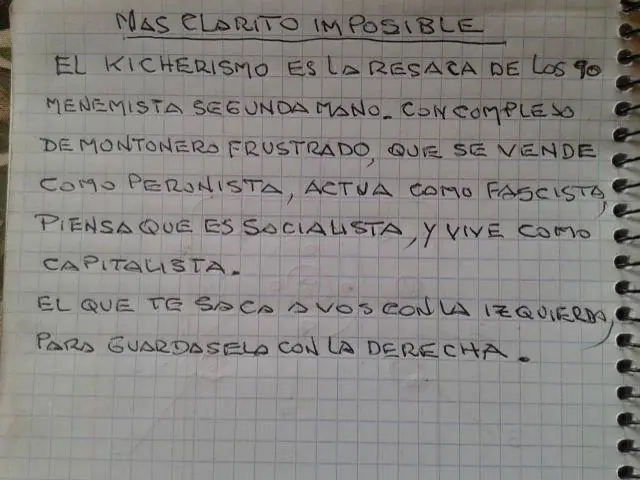 MAS CLARITO IMPOSIBLE
EL KICHERISMO ES LA RESACA DE LOS 90
MENEMISTA SEGUNDA MANO. CON COMPLESO
DE MONTONERO FRUSTRADO, QUE SE VENDE
COMO PERONISTA, ACTUA COMO FASCISTA,
PIENSA QUE ES SOCIALISTA, Y VIVE COMO
CAPITALISTA.
EL QUE TE SACA A VOS CON LA IZQUIERDA,
PARA GUARDASELA CON LA DERECHA.